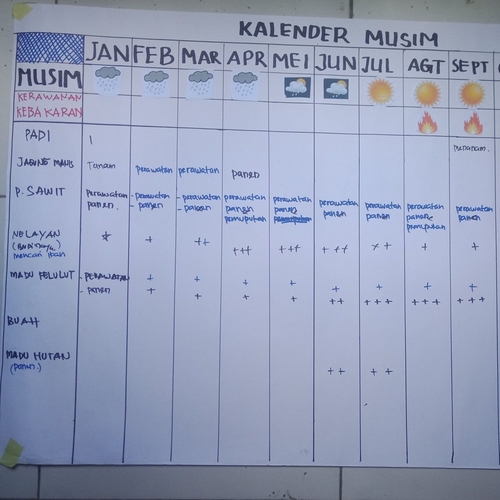 KALENDER MUSIM
JAN FEB MAR APR MEI JUN JUL AGT SEPT
MUSIM
KERAWANAN
KEBAKARAN
PADI
JAGUNG MANIS Tanam perawatan perawatan panen
P. SAWIT perawatan - perawatan - perawatan perawatan perawatan perawatan perawatan perawatan perawatan
panen. - panen panen panen panen panen panen panen
pemupukan pemupukan
NELAYAN + ++ +++ +++ +++ ++ + +
mencari ikan
MADU KELULUT - PERAWATAN + + + + + + + +
- panen + + + + ++ +++ +++ +++
BUAH
MADU HUTAN ++ ++
(panen)